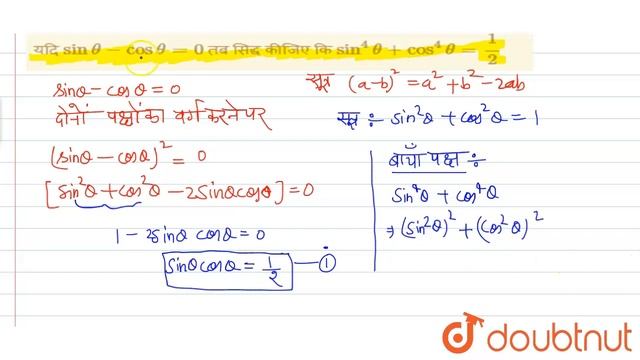 यदि sin θ − cos θ = 0 तब सिद्ध कीजिए कि sin⁴ θ + cos⁴ θ = 1/2
sinθ - cosθ = 0
दोनों पक्षों का वर्ग करने पर
(sinθ - cosθ)² = 0
[sin²θ + cos²θ - 2sinθcosθ] = 0
1 - 2sinθ cosθ = 0
sinθcosθ = 1/2 — ①
सूत्र (a-b)² = a² + b² - 2ab
सूत्र ÷ sin²θ + cos²θ = 1
बायाँ पक्ष ÷
sin⁴θ + cos⁴θ
⇒ (sin²θ)² + (cos²θ)²
doubtnut